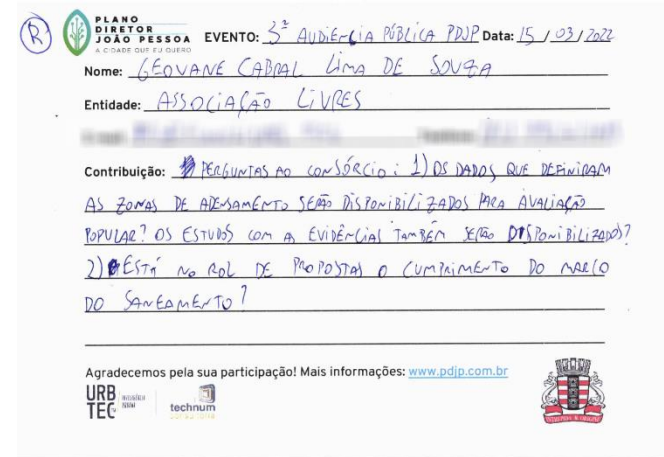 R
PLANO
DIRETOR
JOÃO PESSOA
A CIDADE QUE EU QUERO
EVENTO: 3ª AUDIÊNCIA PÚBLICA PDJP Data: 15/03/2022
Nome: GEOVANE CABRAL LIMA DE SOUZA
Entidade: ASSOCIAÇÃO LIVRES
Contribuição: PERGUNTAS AO CONSÓRCIO: 1) OS DADOS QUE DEFINIRAM
AS ZONAS DE ADENSAMENTO SERÃO DISPONIBILIZADOS PARA AVALIAÇÃO
POPULAR? OS ESTUDOS COM A EVIDÊNCIAS TAMBÉM SERÃO DISPONIBILIZADOS?
2) ESTÁ NO ROL DE PROPOSTAS O CUMPRIMENTO DO MARCO
DO SANEAMENTO?
Agradecemos pela sua participação! Mais informações: www.pdjp.com.br
URB
TEC
technum